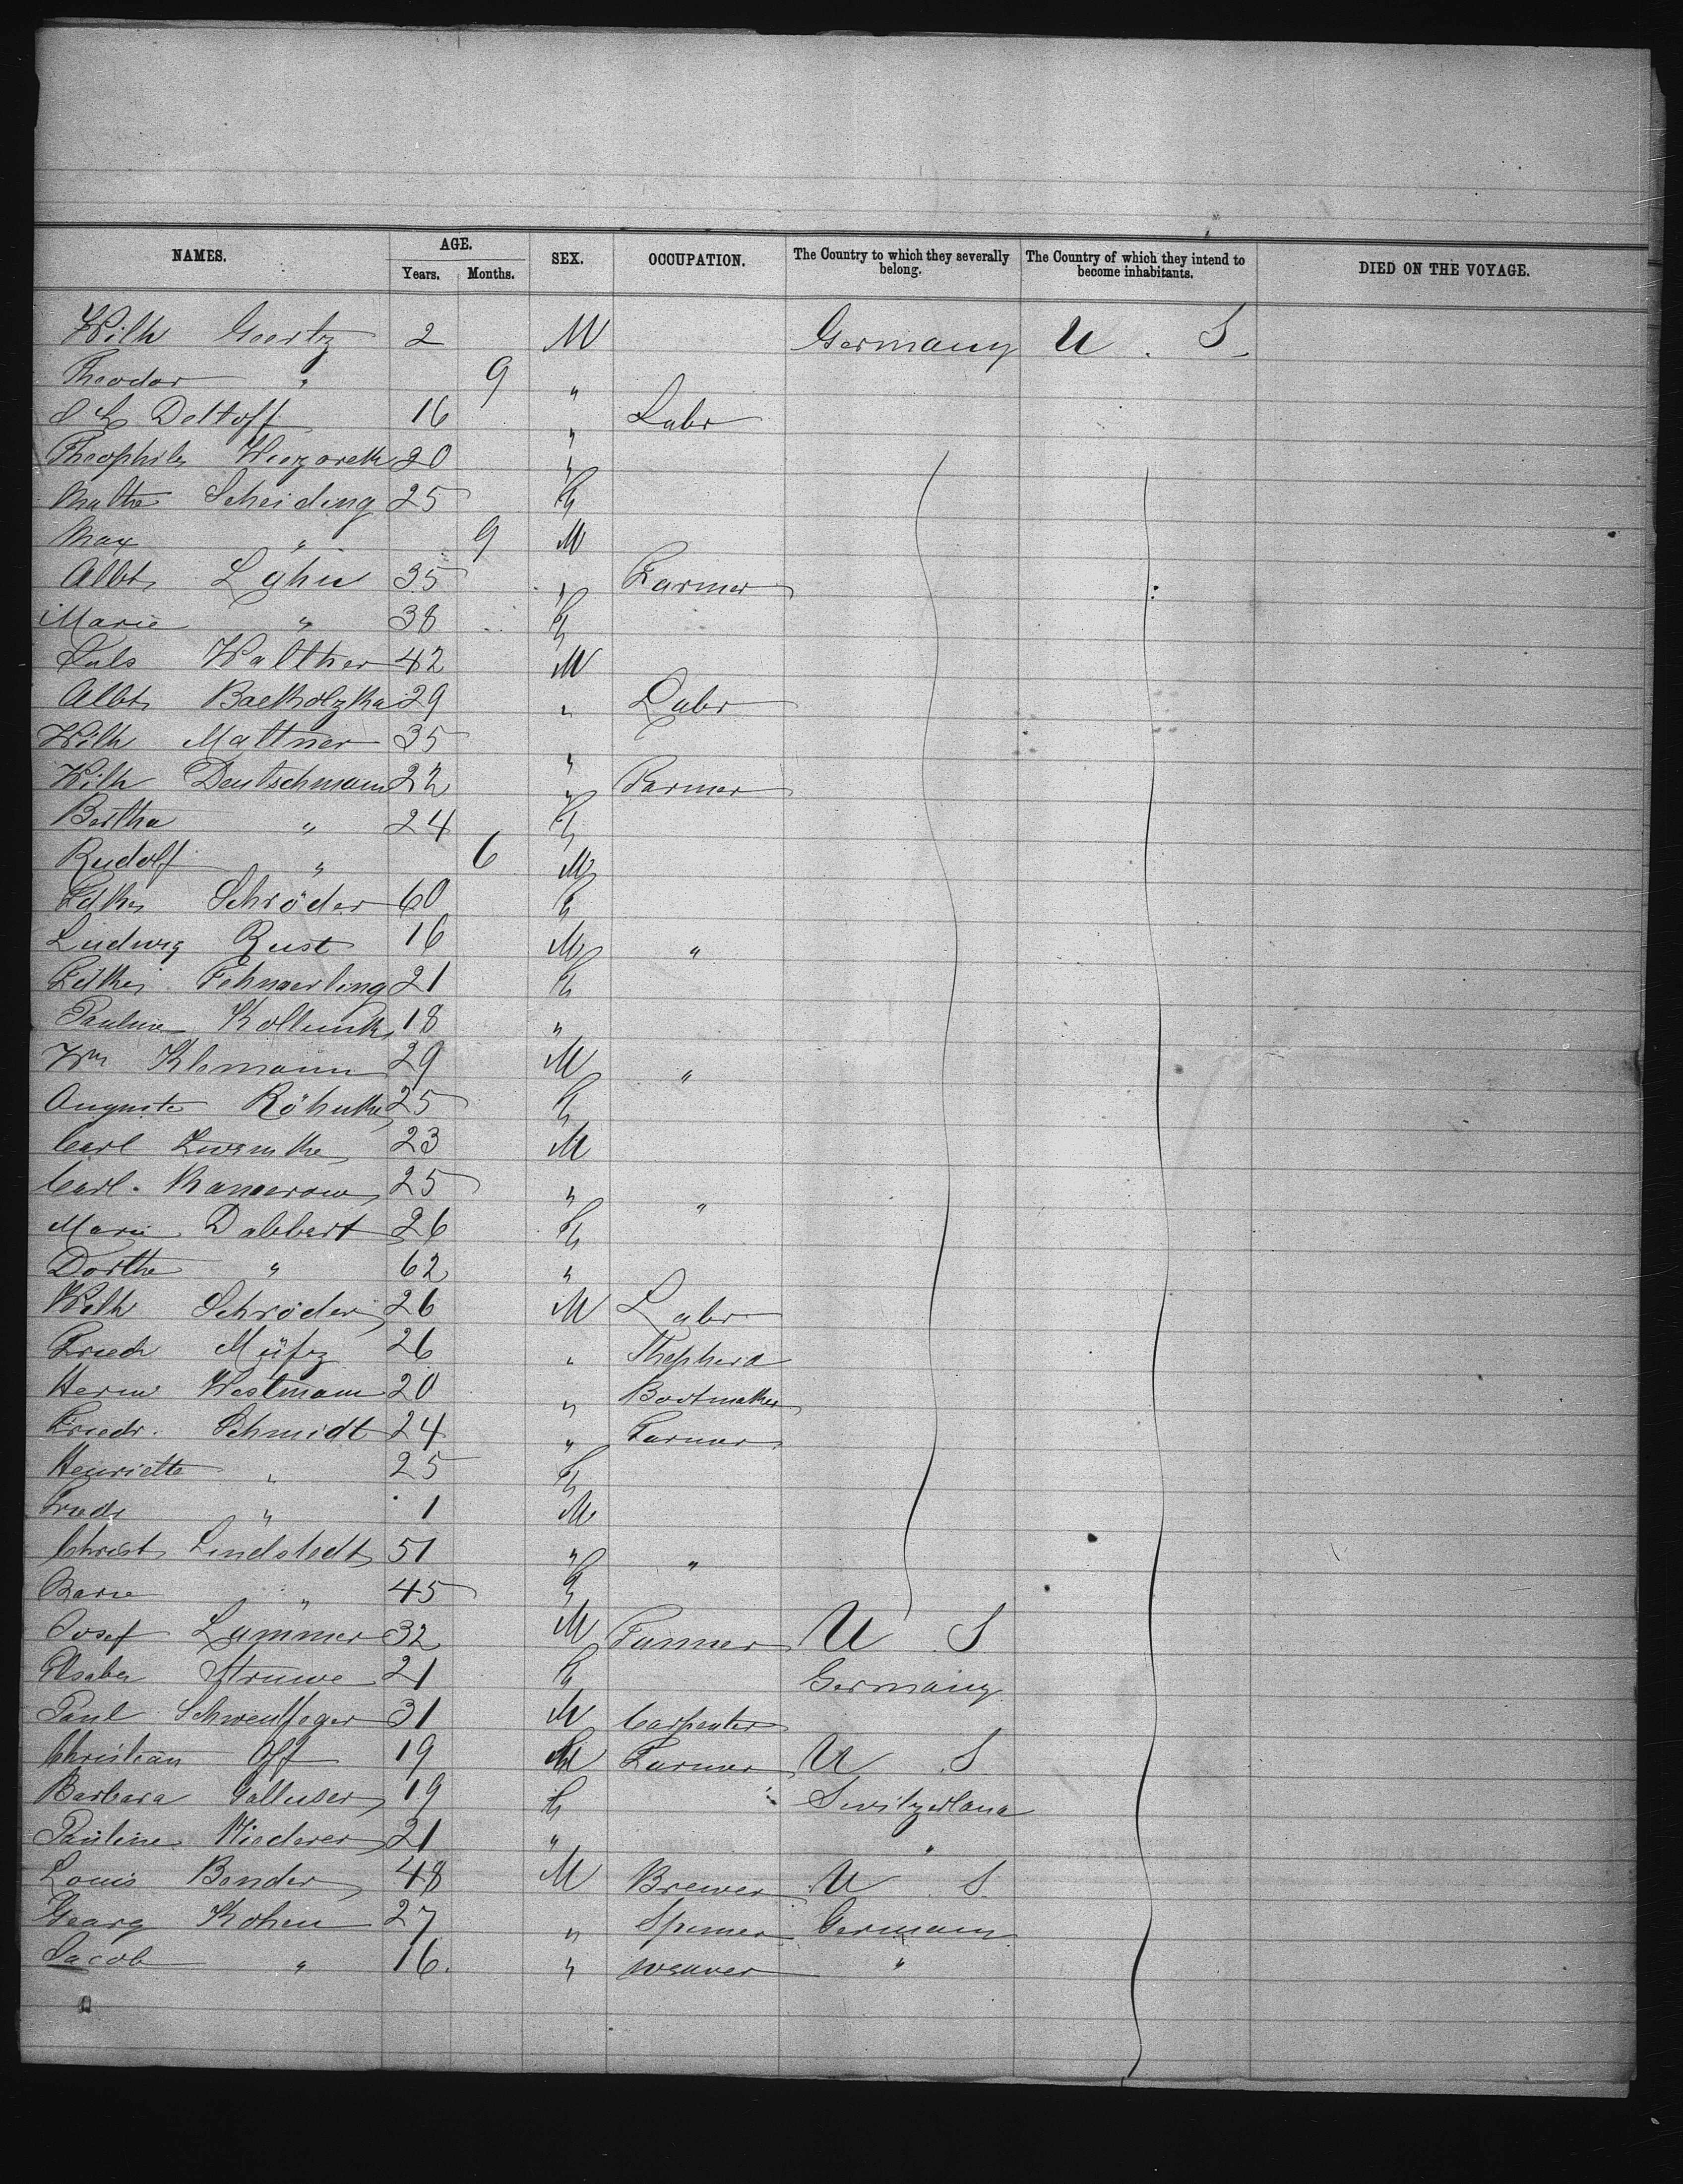 NAMES. AGE. SEX. OCCUPATION. The Country to which they severally belong. The Country of which they intend to become inhabitants. DIED ON THE VOYAGE.
Years. Months.
Wilh Goertz 2 M Germany U. S.
Theodor " 9 "
Deltoff 16 " Labr
20 "
Scheiding 25 F
Max " 9 M
Albt 35 " Farmer
Marie " 38 F
Walther 42 M
Albt 29 " Labr
Wilh Mattner 35 "
Wilh Deutschmann 22 " Farmer
Bertha " 24 F
Rudolf " 6 M
Schröder 60 F
Ludwig Rust 16 M "
21 F
Pauline 18 "
Wm Klemann 29 M "
Auguste 25 F
Carl 23 M
Carl 25 " "
Marie Dabbert 26 F
Dorthe " 62 "
Wilh Schröder 26 M Labr
Friedr 26 " Shepherd
Herm Westmann 20 " Bootmaker
Friedr. Schmidt 24 " Farmer
Henriette " 25 F
Friedr " 1 M
Christ Lindstedt 51 " "
" 45 F
Josef Lammer 32 M Farmer U S
Struwe 21 F Germany
Paul Schwenffeger 31 M Carpenter
Christian Off 19 M Farmer U. S.
Barbara Galluser 19 F Switzerland
Pauline Niederer 21 " "
Louis Bender 48 M Brewer U S.
Georg Kohen 27 " Spinner Germany
Jacob " 16. " weaver "